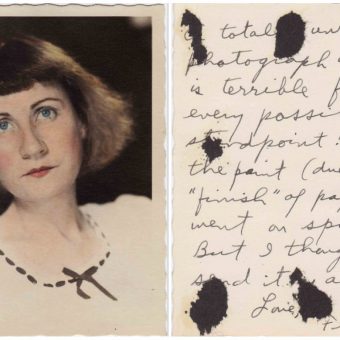 totally un
photograph
is terrible f
every possi
standpoint
the paint (due
"finish" of pa
went on sp
But I thoug
send it a
Love,